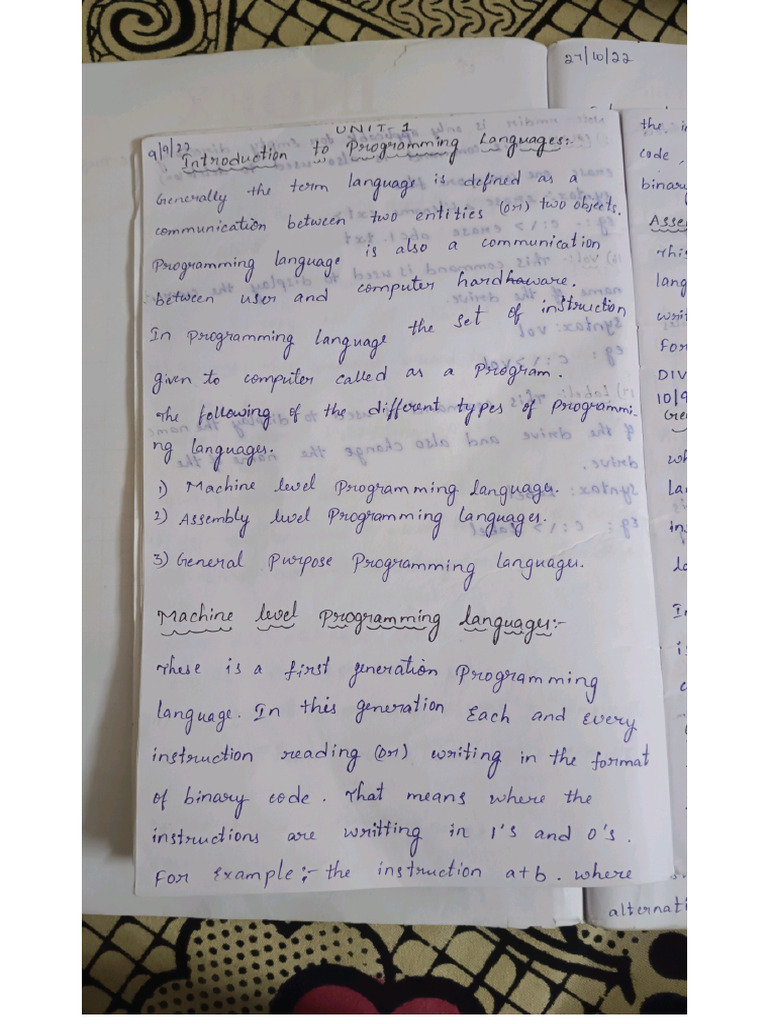 27/10/22
UNIT-1
9/9/22
Introduction to Programming Languages:-
Generally the term language is defined as a
communication between two entities (or) two objects.
Programming language is also a communication
between user and computer hardhaware.
In programming language the set of instruction
given to computer called as a Program.
The following of the different types of Programmi-
ng languages.
1) Machine level Programming languages.
2) Assembly level Programming languages.
3) General Purpose Programming languages.
Machine level Programming languages:-
These is a first generation Programming
language. In this generation Each and Every
instruction reading (or) writing in the format
of binary code. That means where the
instructions are writting in 1's and 0's.
For Example:- the instruction a+b. where
the i
code,
binary
Asse
This
lang
writ
For
DIV
10/9
Gen
wh
La
ins
la
In
is
c
alternati